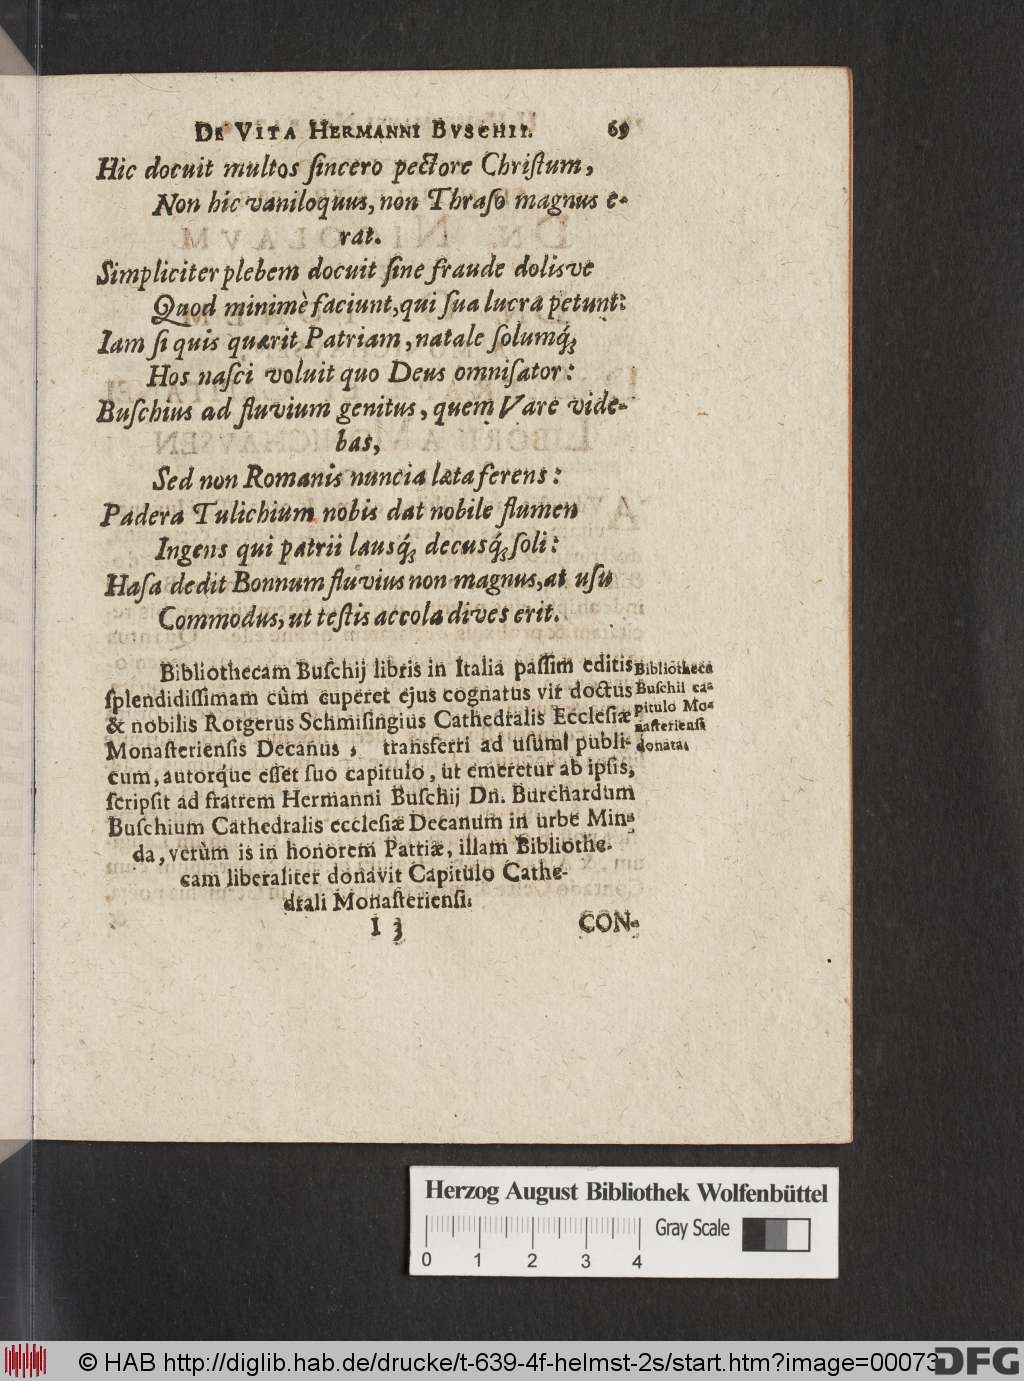 DE VITA HERMANNI BVSCHII. 69
Hic docuit multos ſincero pectore Chriſtum,
Non hic vaniloquus, non Thraſo magnus e-
rat.
Simpliciter plebem docuit ſine fraude dolisve
Quod minimè faciunt, qui ſua lucra petunt:
Iam ſi quis quærit Patriam, natale ſolumq́ꝫ
Hos naſci voluit quo Deus omniſator:
Buſchius ad fluvium genitus, quem Vare vide-
bas,
Sed non Romanis nuncia læta ferens:
Padera Tulichium nobis dat nobile flumen
Ingens qui patrii lausq́ꝫ decusq́ꝫ ſoli:
Haſa dedit Bonnum fluvius non magnus, at uſu
Commodus, ut teſtis accola dives erit.
Bibliothecam Buſchij libris in Italia paſſim editis
ſplendidiſſimam cûm cuperet ejus cognatus vir doctus
& nobilis Rotgerus Schmiſingius Cathedralis Eccleſiæ
Monaſterienſis Decanus, transferri ad uſum publi-
cum, autorque eſſet ſuo capitulo, ut emeretur ab ipſis,
ſcripſit ad fratrem Hermanni Buſchij Dn. Burchardum
Buſchium Cathedralis eccleſiæ Decanum in urbe Min-
da, verùm is in honorem Patriæ, illam Bibliothe-
cam liberaliter donavit Capitulo Cathe-
drali Monaſterienſi.
Bibliotheca
Buſchii ca-
pitulo Mo-
naſterienſi
donata.
I 3 CON-
Herzog August Bibliothek Wolfenbüttel
Gray Scale
0 1 2 3 4
© HAB http://diglib.hab.de/drucke/t-639-4f-helmst-2s/start.htm?image=00073
DFG